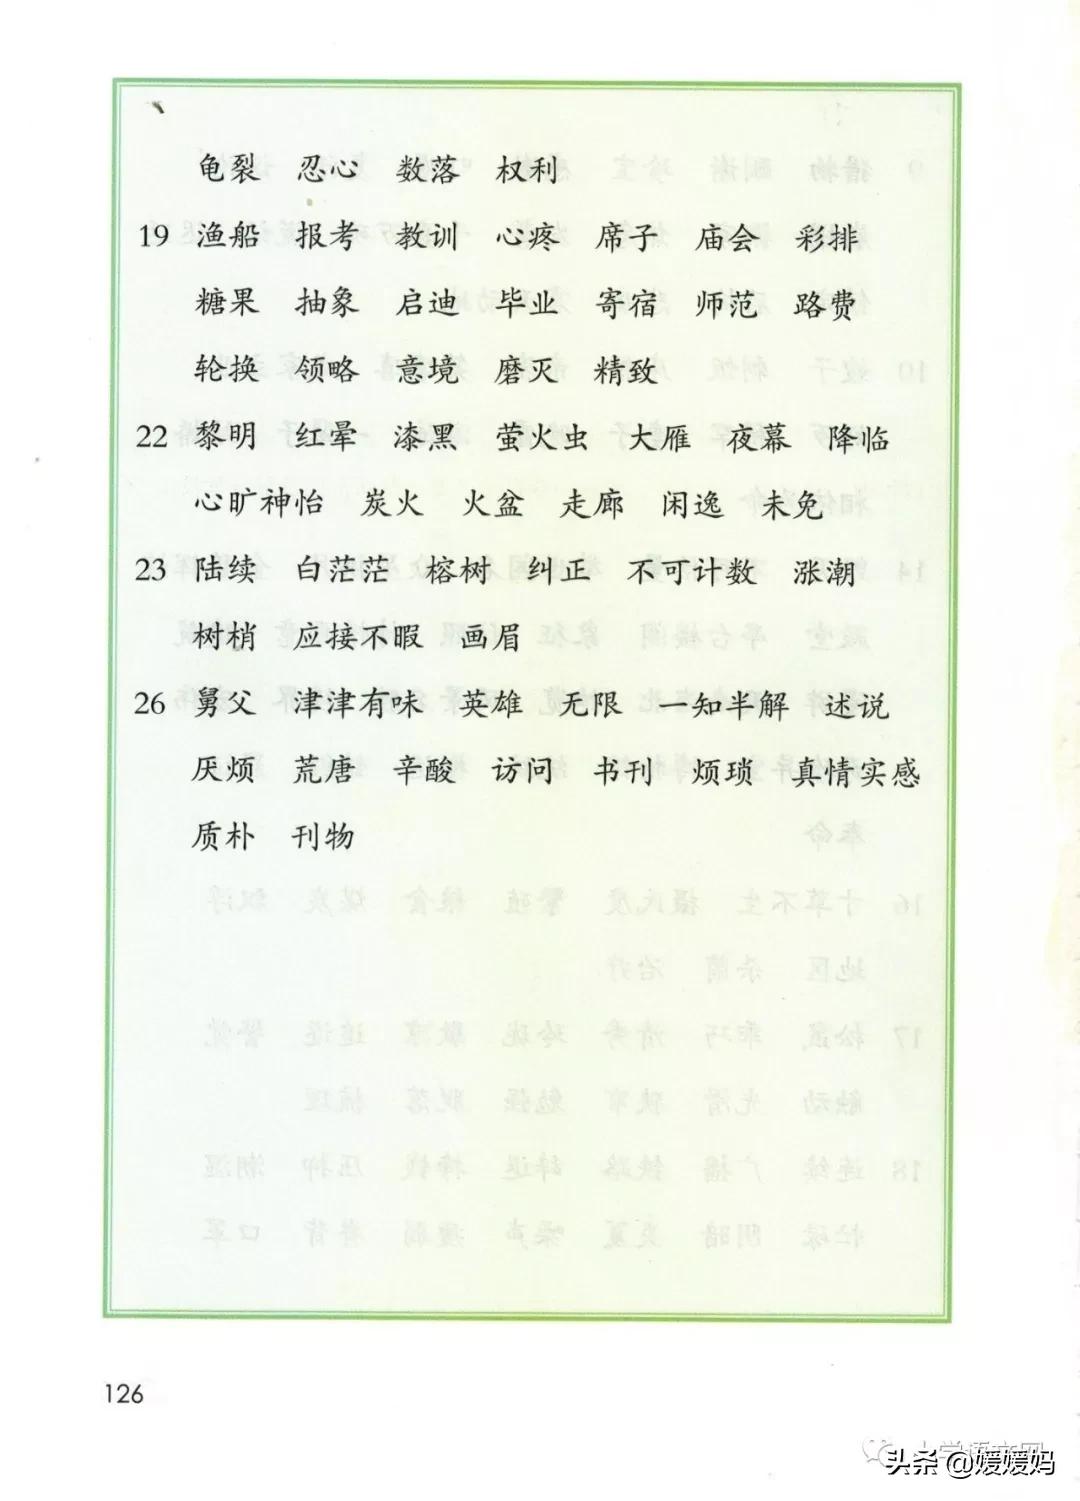 龟裂 忍心 数落 权利
19 渔船 报考 教训 心疼 席子 庙会 彩排
糖果 抽象 启迪 毕业 寄宿 师范 路费
轮换 领略 意境 磨灭 精致
22 黎明 红晕 漆黑 萤火虫 大雁 夜幕 降临
心旷神怡 炭火 火盆 走廊 闲逸 未免
23 陆续 白茫茫 榕树 纠正 不可计数 涨潮
树梢 应接不暇 画眉
26 舅父 津津有味 英雄 无限 一知半解 述说
厌烦 荒唐 辛酸 访问 书刊 烦琐 真情实感
质朴 刊物
126
头条 @媛媛妈